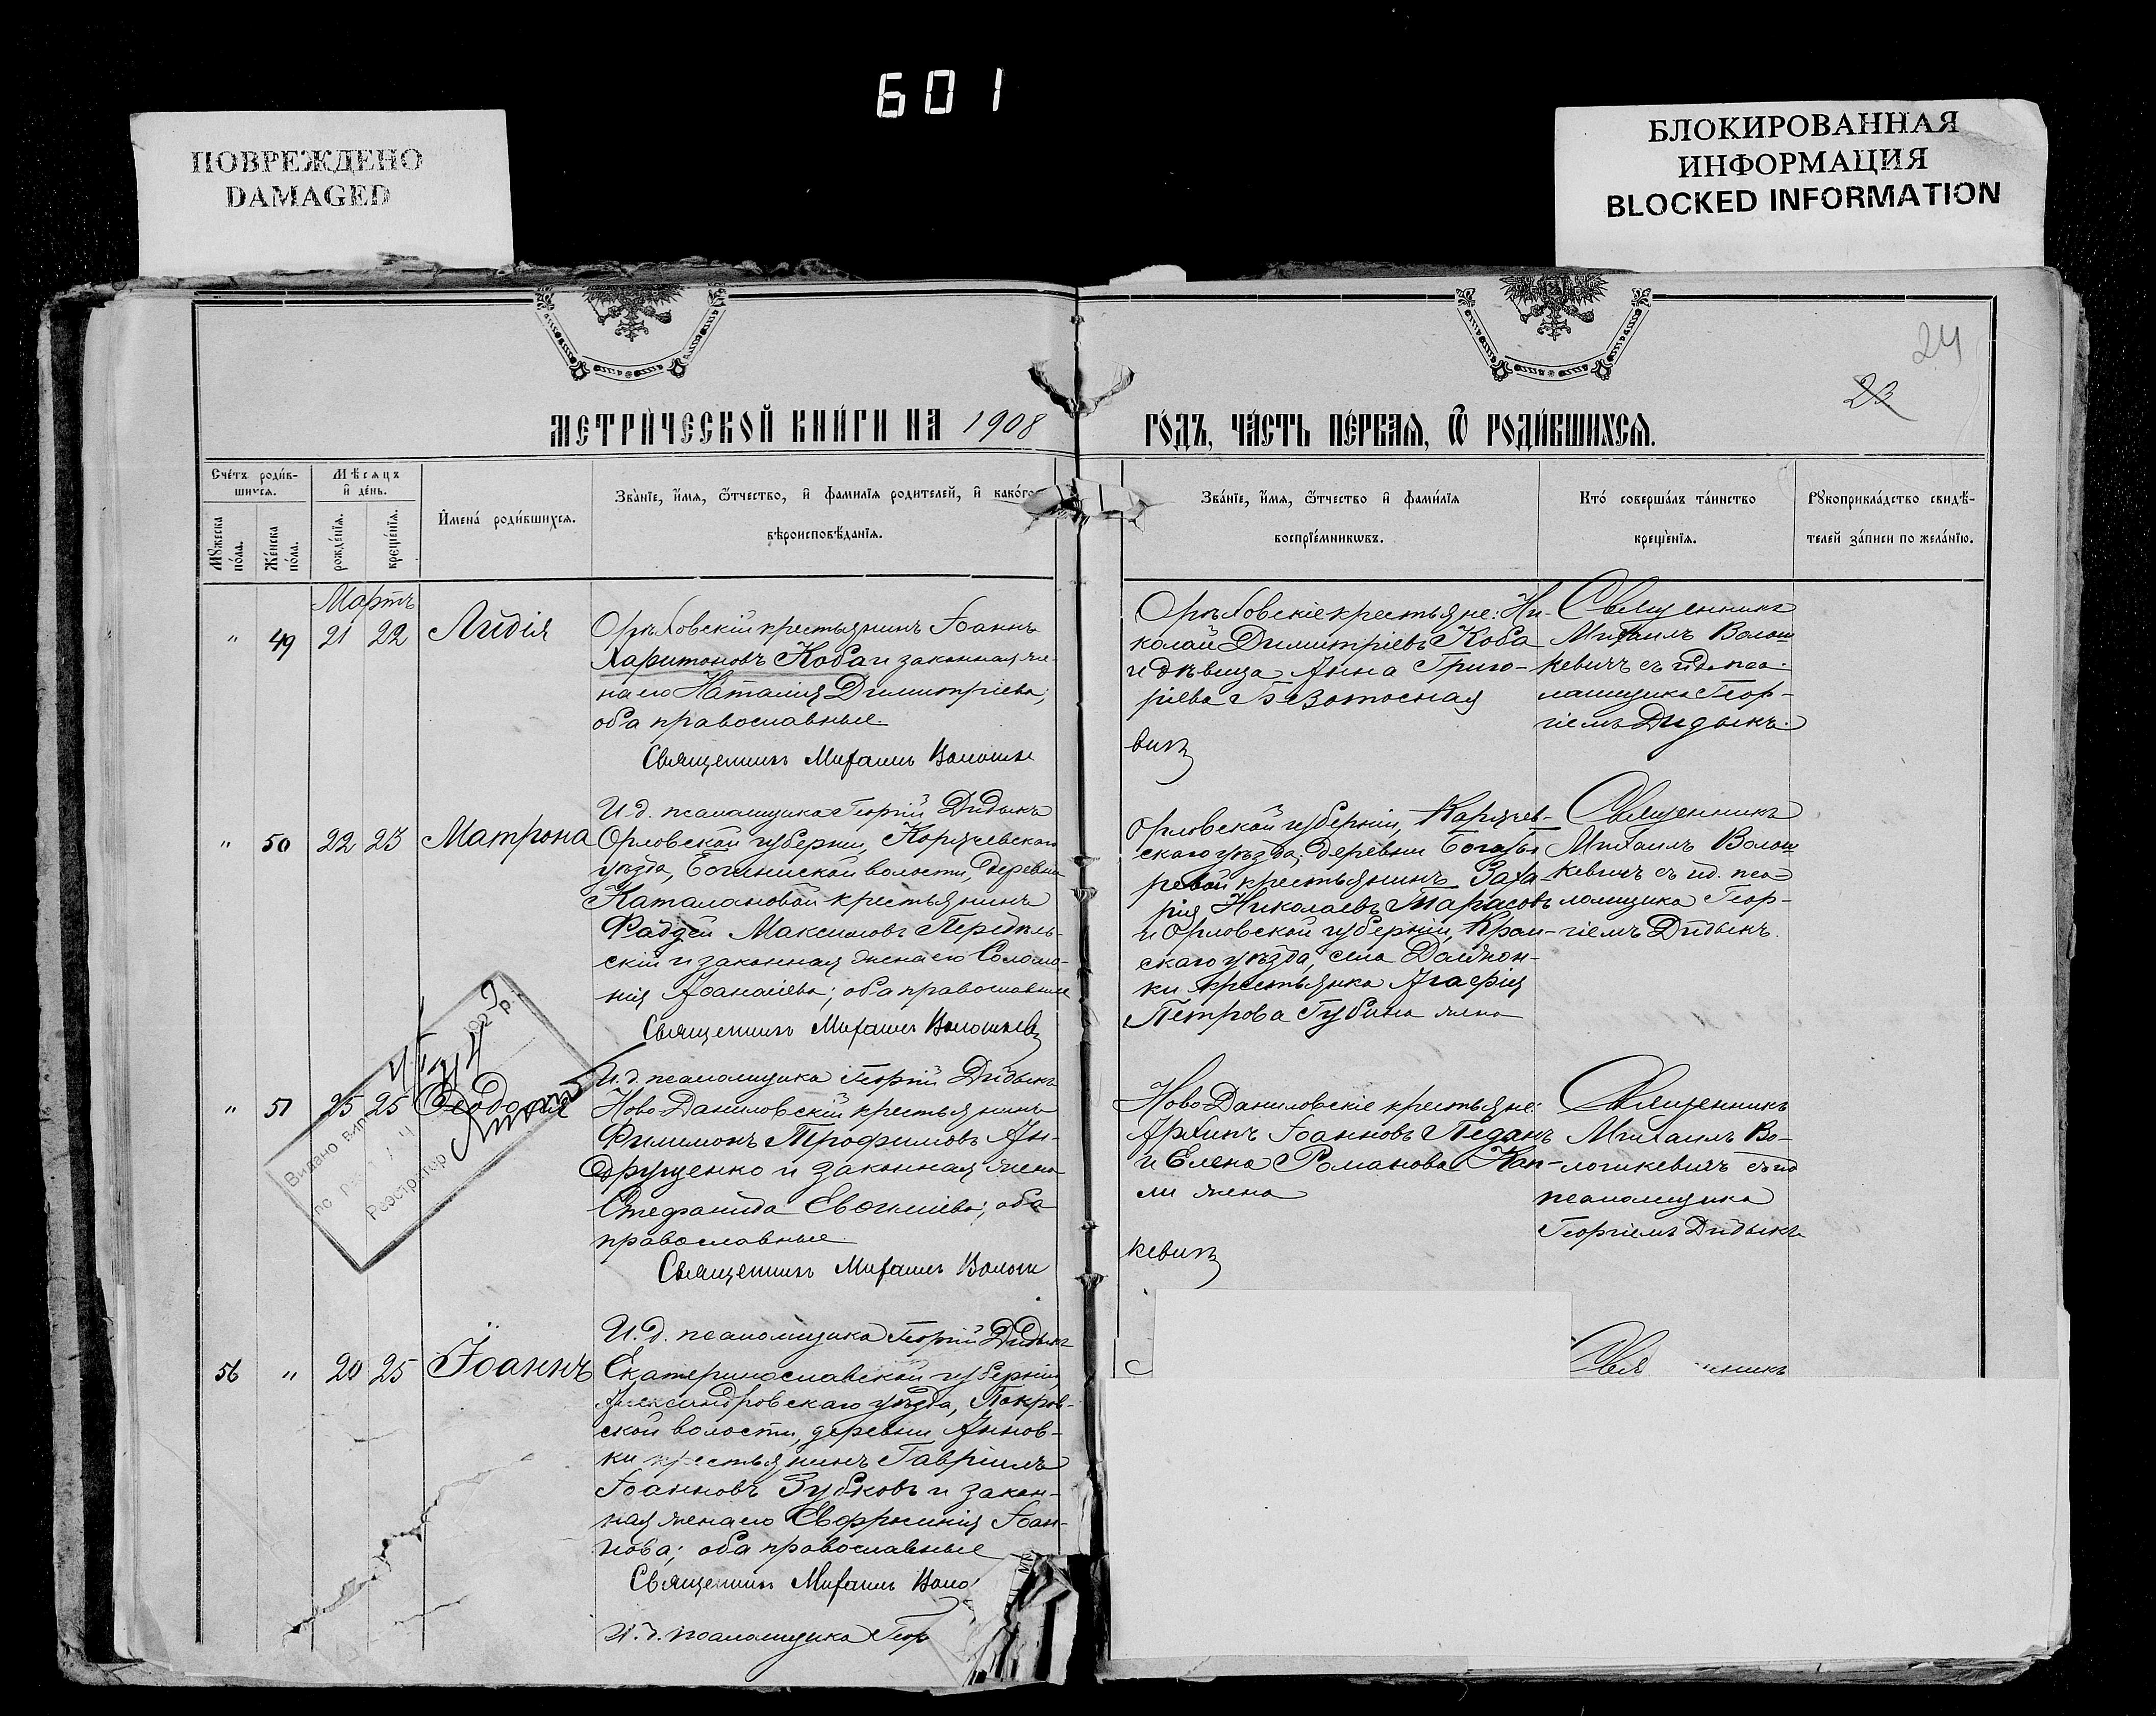 601
ПОВРЕЖДЕНО
DAMAGED
БЛОКИРОВАННАЯ
ИНФОРМАЦИЯ
BLOCKED INFORMATION
24
23
МЕТРИ́ЧЕСКОЙ КНИ́ГИ НА 1908
ГО́ДЪ, ЧА́СТЬ ПЕ́РВАЯ, Ѿ РОДИ́ВШИХСЯ.
Сче́тъ роди́в-
шихся.
Мꙋжеска по́ла.
Же́нска по́ла.
Мѣсяцъ
и҆ де́нь.
рожде́нїя.
креще́нїя.
И҆мена̀ роди́вшихся.
Зва́нїе, и҆́мя, ѻ҆́тчество, и҆ фами́лїя родителей, и҆ како́го
вѣроисповѣ́данїя.
Зва́нїе, и҆́мя, ѻ҆́тчество и҆ фами́лїя
воспрїе́мникѡвъ.
Кто̀ соверша́лъ та́инство
креще́нїя.
Рꙋкоприкла́дство свидѣ́-
телей за́писи по жела́нїю.
Мартъ
" 49 21 22 Лидія
Орѣховскій крестьянинъ Іоаннъ
Харитоновъ Коба и законная же-
на его Наталія Димитріева;
оба православные.
Священникъ Михаилъ Волошке
вичъ
Орѣховскіе крестьяне: Ни-
колай Димитріевъ Коба
и дѣвица Анна Григо-
ріева Безотосная
Священникъ
Михаилъ Волош
кевичъ съ и д. пса-
ломщика Геор-
гіемъ Дидыкъ.
И. д. псаломщика Георгій Дидыкъ
" 50 22 23 Матрона
Орловской губерніи, Карачевскаго
уѣзда, волости, деревни
крестьянинъ
Фаддей Максимовъ
скій и законная жена его Соломо-
нія Аѳанасіева; оба православные
Священникъ Михаилъ Волошкевичъ
Орловской губерніи, Карачев-
скаго уѣзда, деревни
ревой крестьянинъ Заха-
рія Николаевъ Тарасовъ
и Орловской губерніи, Кром-
скаго уѣзда, села
ки крестьянка Агафія
Петрова Губина жена
Священникъ
Михаилъ Волош
кевичъ съ и д. пса-
ломщика Геор-
гіемъ Дидыкъ.
И. д. псаломщика Георгій Дидыкъ
" 51 25 25 Ѳеодосія
Ново Даниловскій крестьянинъ
Филимонъ Трофимовъ Ан-
друщенко и законная жена
Стефанида Евогніева; оба
православные.
Священникъ Михаилъ Волош
кевичъ
Ново Даниловскіе крестьяне:
Архипъ Іоанновъ Педанъ
и Елена Романова Кап-
ли жена
Священникъ
Михаилъ Во-
лошкевичъ съ и д
псаломщика
Георгіемъ Дидыкъ
Видано вип
Реэстратор
И. д. псаломщика Георгій Дидыкъ
56 " 20 25 Іоаннъ
Екатеринославской губерніи,
Александровскаго уѣзда, Покров-
ской волости, деревни Аннов-
ки крестьянинъ Гавріилъ
Іоанновъ Зубковъ и закон-
ная жена его Евфросинія Іоан-
нова; оба православные
Священникъ Михаилъ Воло
И. д. псаломщика Геор